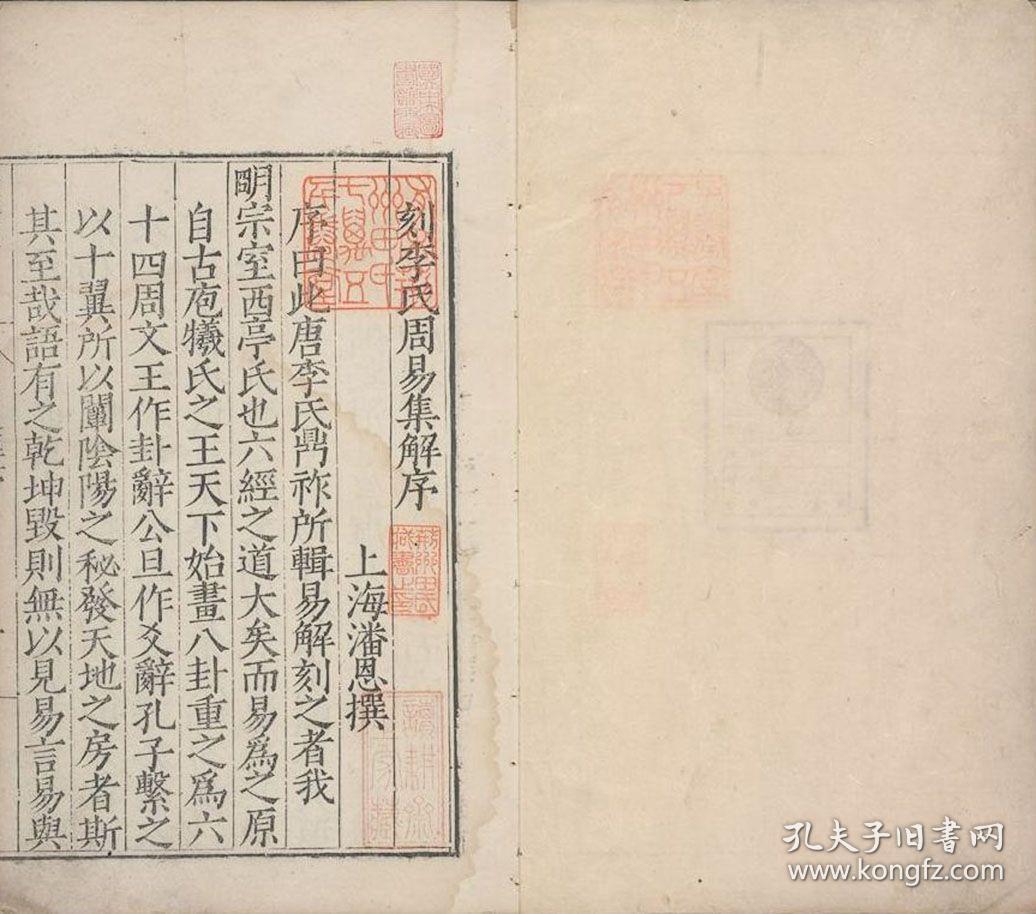 刻李氏周易集解序
上海潘恩撰
序曰此唐李氏鼎祚所輯易解刻之者我
明宗室西亭氏也六經之道大矣而易爲之原
自古庖犧氏之王天下始畫八卦重之爲六
十四周文王作卦辭公旦作爻辭孔子繫之
以十翼所以闡陰陽之秘發天地之房者斯
其至哉語有之乾坤毀則無以見易言易與
孔夫子旧书网
www.kongfz.com